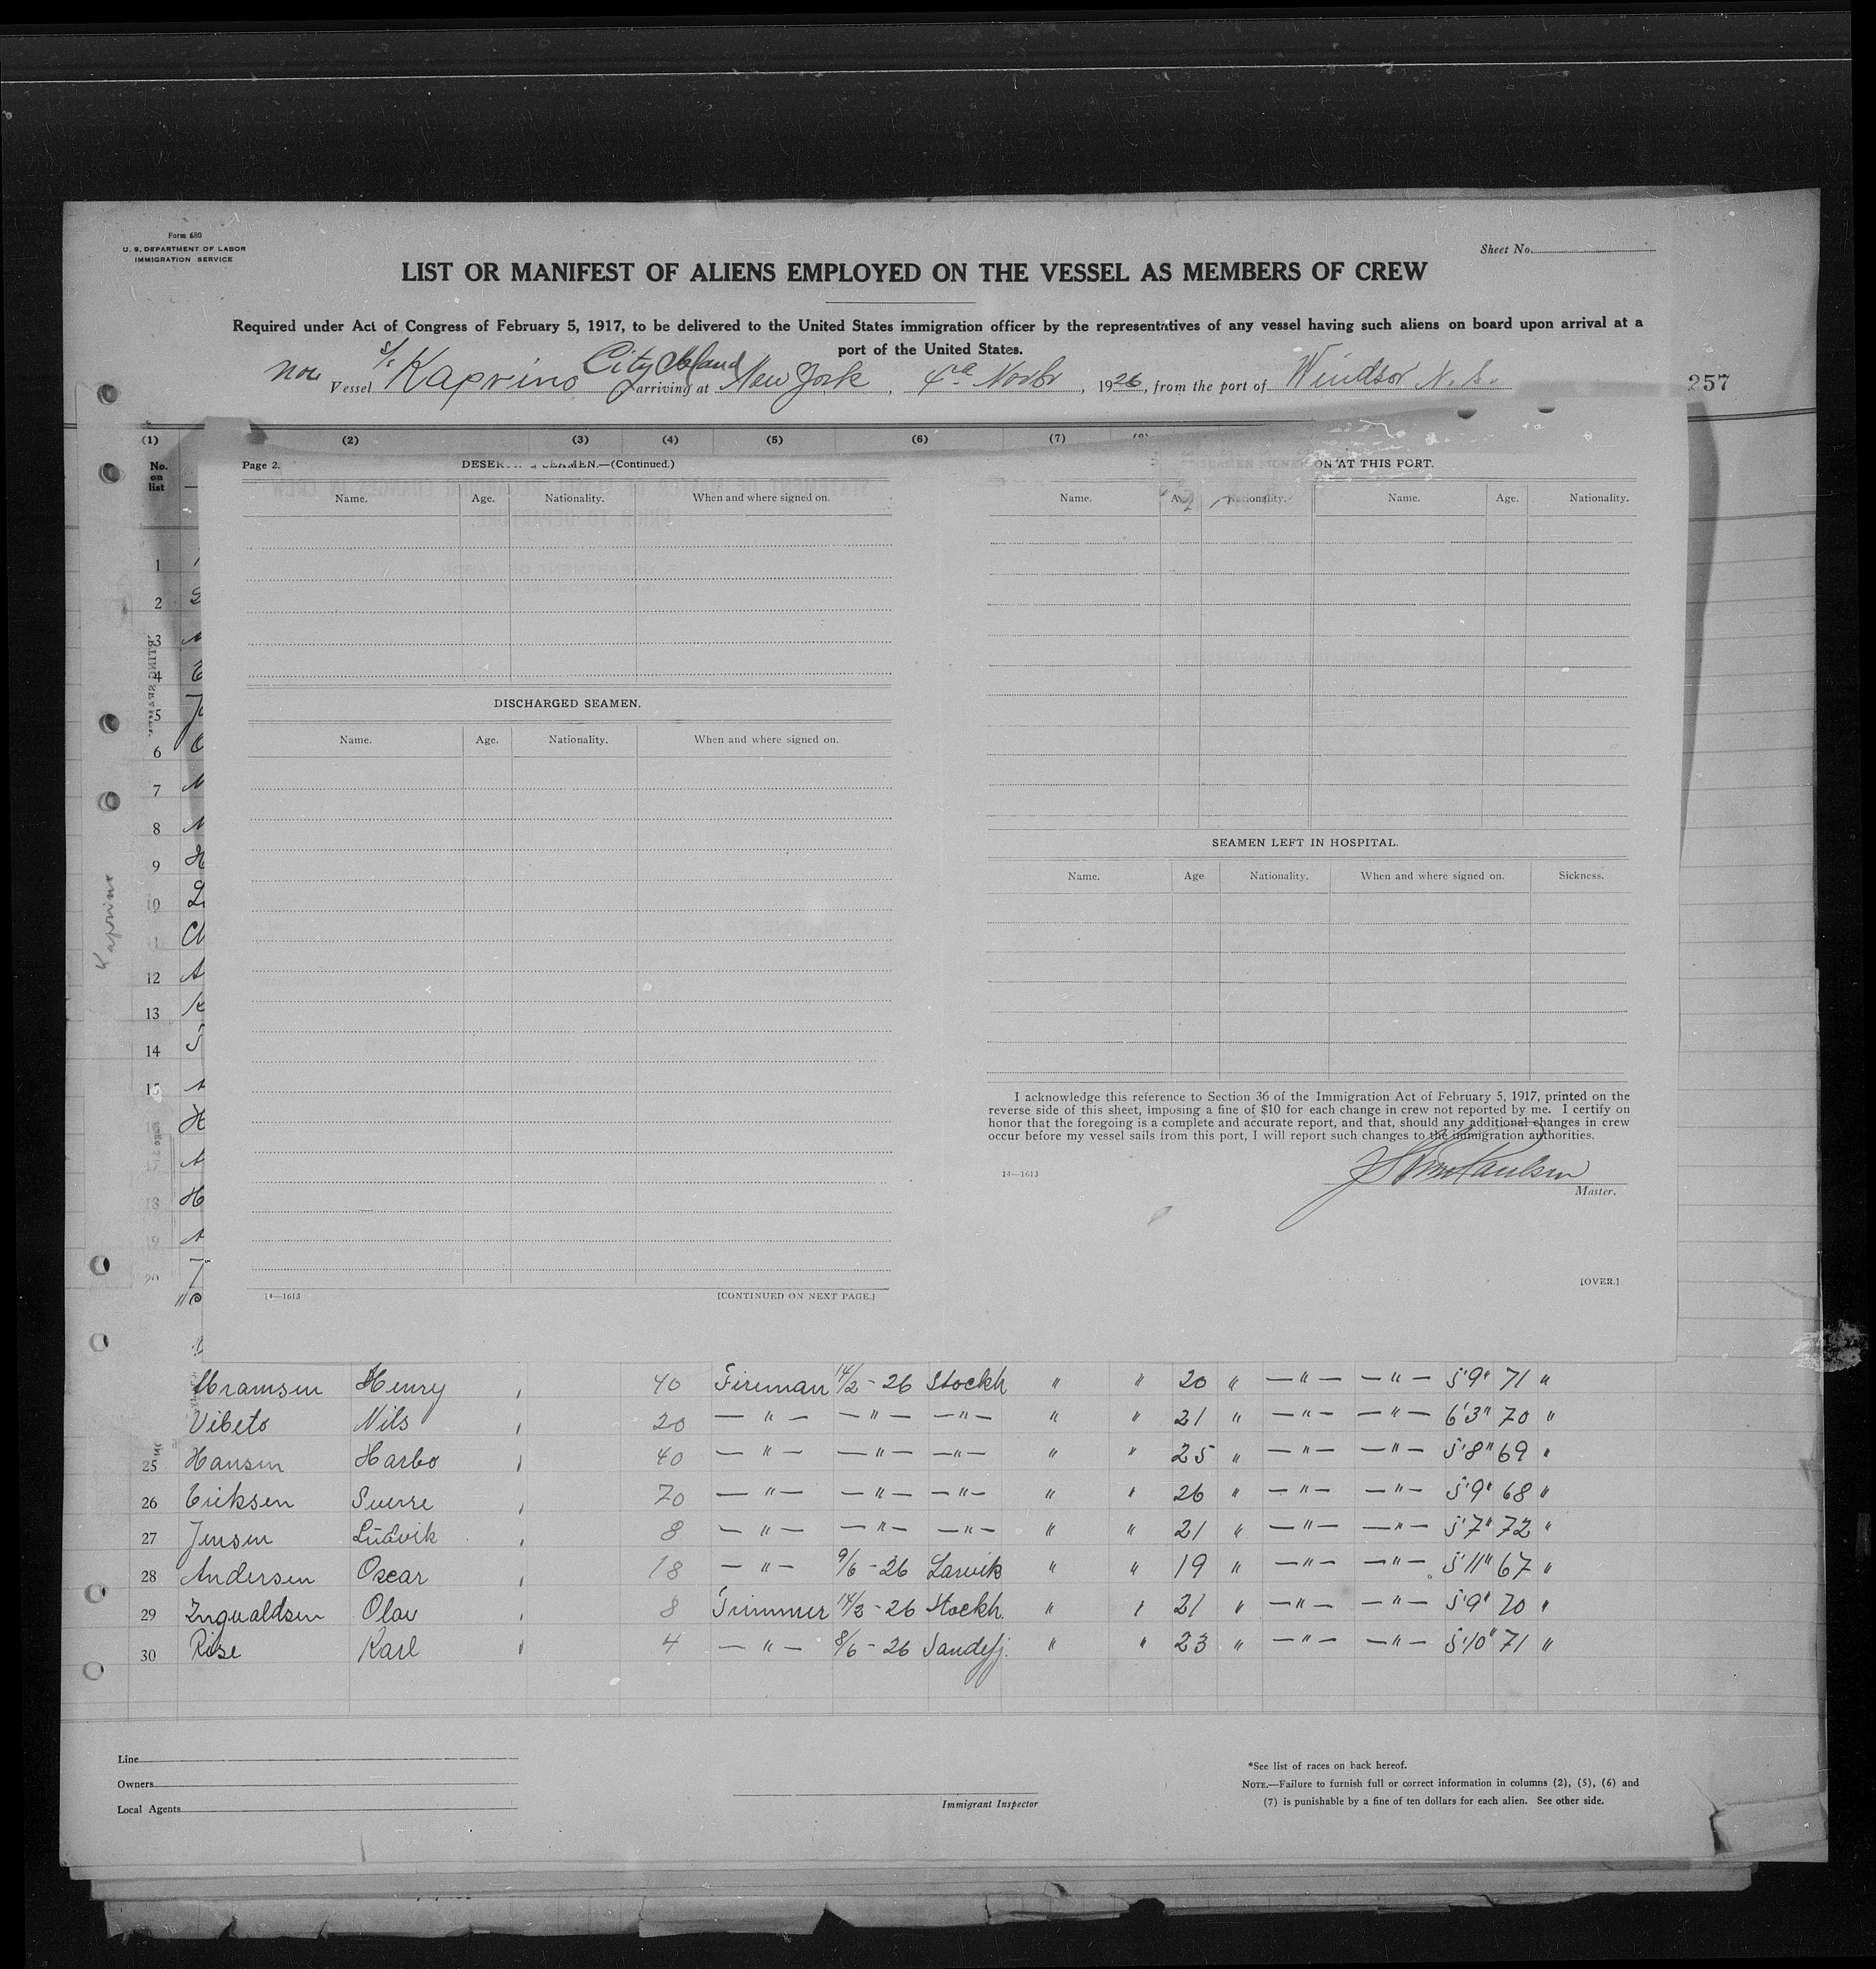 Form 680
U. S. DEPARTMENT OF LABOR
IMMIGRATION SERVICE
Sheet No.
LIST OR MANIFEST OF ALIENS EMPLOYED ON THE VESSEL AS MEMBERS OF CREW
Required under Act of Congress of February 5, 1917, to be delivered to the United States immigration officer by the representatives of any vessel having such aliens on board upon arrival at a
port of the United States.
Nor. S/S Vessel Kaprino City Island arriving at New York, 4 Novbr, 1926, from the port of Windsor N. S.
257
(1) (2) (3) (4) (5) (6) (7)
No. on list
Page 2. SEAMEN.—(Continued.) ON AT THIS PORT.
Name. Age. Nationality. When and where signed on. Name. Nationality. Name. Age. Nationality.
1
2
3
4
5
6
7
8
9
10
11
12
13
14
15
17
18
19
20
DISCHARGED SEAMEN.
Name. Age. Nationality. When and where signed on.
SEAMEN LEFT IN HOSPITAL.
Name. Age Nationality. When and where signed on. Sickness.
Kaprino
I acknowledge this reference to Section 36 of the Immigration Act of February 5, 1917, printed on the
reverse side of this sheet, imposing a fine of $10 for each change in crew not reported by me. I certify on
honor that the foregoing is a complete and accurate report, and that, should any additional changes in crew
occur before my vessel sails from this port, I will report such changes to the immigration authorities.
14—1613
Master.
[OVER.]
14—1613 [CONTINUED ON NEXT PAGE.]
Abramsen Henry 40 Fireman 14/2-26 Stockh " " 20 " —"— —"— 5'9" 71 "
Vibeto Nils 20 —"— —"— —"— " " 21 " —"— —"— 6'3" 70 "
25 Hansen Harbo 40 —"— —"— —"— " " 25 " —"— —"— 5'8" 69 "
26 Eriksen Sverre 70 —"— —"— —"— " " 26 " —"— —"— 5'9" 68 "
27 Jensen Ludvik 8 —"— —"— —"— " " 21 " —"— —"— 5'7" 72 "
28 Andersen Oscar 18 —"— 9/6-26 Larvik " " 19 " —"— —"— 5'11" 67 "
29 Ingvaldsen Olav 8 Trimmer 14/2-26 Stockh. " " 21 " —"— —"— 5'9" 70 "
30 Rise Karl 4 —"— 8/6-26 Sandefj. " " 23 " —"— —"— 5'10" 71 "
Line
Owners
Local Agents
Immigrant Inspector
*See list of races on back hereof.
NOTE.—Failure to furnish full or correct information in columns (2), (5), (6) and
(7) is punishable by a fine of ten dollars for each alien. See other side.